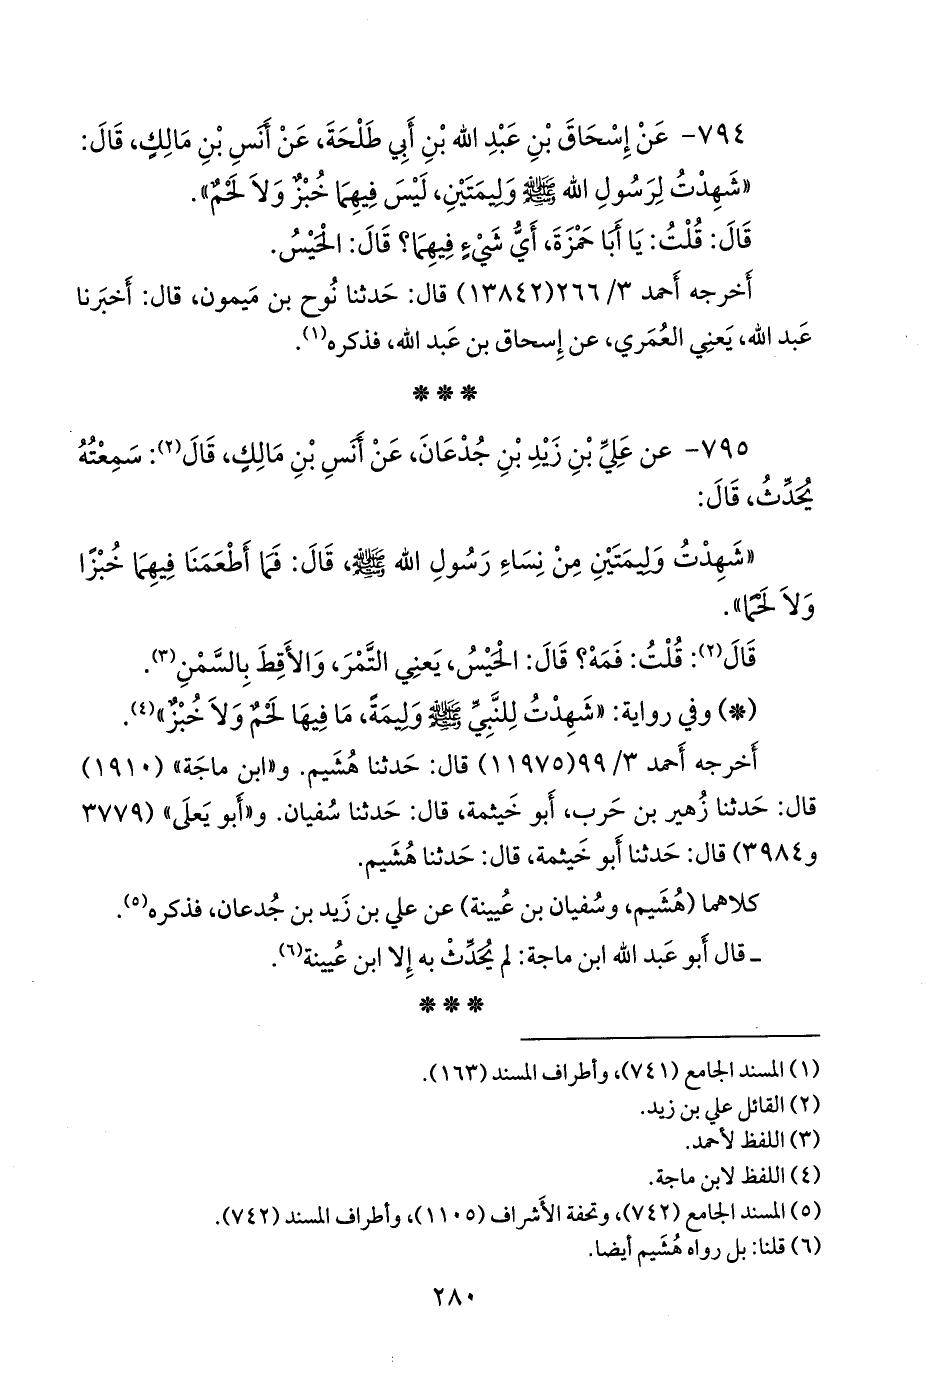 ٧٩٤- عَنْ إِسْحَاقَ بْنِ عَبْدِ الله بْنِ أَبِي طَلْحَةَ، عَنْ أَنَسِ بْنِ مَالِكٍ، قَالَ:
«شَهِدْتُ لِرَسُولِ الله ﷺ وَلِيمَتَيْنِ، لَيْسَ فِيهِمَا خُبْزٌ وَلاَ لَحْمٌ».
قَالَ: قُلْتُ: يَا أَبَا حَمْزَةَ، أَيُّ شَيْءٍ فِيهِمَا؟ قَالَ: الْحَيْسُ.
أَخرجه أَحمد ٣/ ٢٦٦(١٣٨٤٢) قال: حَدثنا نُوح بن مَيمون، قال: أَخبَرنا
عَبد الله، يَعنِي العُمَري، عن إِسحاق بن عَبد الله، فذكره(١).
* * *
٧٩٥- عن عَلِيِّ بْنِ زَيْدِ بْنِ جُدْعَانَ، عَنْ أَنَسِ بْنِ مَالِكٍ، قَالَ(٢): سَمِعْتُهُ
يُحَدِّثُ، قَالَ:
«شَهِدْتُ وَلِيمَتَيْنِ مِنْ نِسَاءِ رَسُولِ الله ﷺ، قَالَ: فَمَا أَطْعَمَنَا فِيهِمَا خُبْزًا
وَلاَ لَحْمًا».
قَالَ(٢): قُلْتُ: فَمَهْ؟ قَالَ: الْحَيْسُ، يَعنِي التَّمْرَ، وَالأَقِطَ بِالسَّمْنِ(٣).
(*) وفي رواية: «شَهِدْتُ لِلنَّبِيِّ ﷺ وَلِيمَةً، مَا فِيهَا لَحْمٌ وَلاَ خُبْزٌ»(٤).
أَخرجه أَحمد ٣/ ٩٩(١١٩٧٥) قال: حَدثنا هُشَيم. و«ابن ماجَة» (١٩١٠)
قال: حَدثنا زُهير بن حَرب، أَبو خَيثمة، قال: حَدثنا سُفيان. و«أَبو يَعلَى» (٣٧٧٩
و٣٩٨٤) قال: حَدثنا أَبو خَيثمة، قال: حَدثنا هُشَيم.
كلاهما (هُشَيم، وسُفيان بن عُيينة) عن علي بن زَيد بن جُدعان، فذكره(٥).
ـ قال أَبو عَبد الله ابن ماجة: لم يُحَدِّثْ به إِلا ابن عُيينة(٦).
* * *
(١) المسند الجامع (٧٤١)، وأطراف المسند (١٦٣).
(٢) القائل علي بن زيد.
(٣) اللفظ لأحمد.
(٤) اللفظ لابن ماجة.
(٥) المسند الجامع (٧٤٢)، وتحفة الأَشراف (١١٠٥)، وأطراف المسند (٧٤٢).
(٦) قلنا: بل رواه هُشَيم أيضا.
٢٨٠